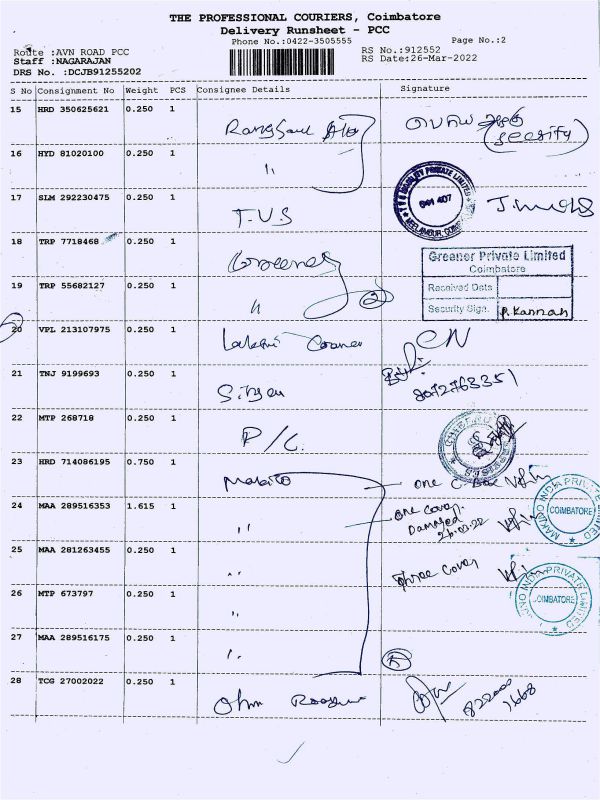 THE PROFESSIONAL COURIERS, Coimbatore
Delivery Runsheet - PCC
Phone No.:0422-3505555
Page No.:2
Route :AVN ROAD PCC
RS No.:912552
Staff :NAGARAJAN
RS Date:26-Mar-2022
DRS No. :DCJB91255202
S No Consignment No Weight PCS Consignee Details Signature
15 HRD 350625621 0.250 1
16 HYD 81020100 0.250 1 "
17 SLM 292230475 0.250 1 T.V.S
18 TRP 7718468 0.250 1 Greener
Greener Private Limited
Coimbatore
Received Date
Security Sign. P. Kannan
19 TRP 55682127 0.250 1 " 2
20 VPL 213107975 0.250 1 CN
21 TNJ 9199693 0.250 1
8072763351
22 MTP 268718 0.250 1 P/C.
23 HRD 714086195 0.750 1 Makino one C. Box
24 MAA 289516353 1.615 1 " one Cover
Damaged
26-03-22
MAKINO INDIA PRIVATE LIMITED
COIMBATORE
25 MAA 281263455 0.250 1 " three cover
COIMBATORE
26 MTP 673797 0.250 1 "
27 MAA 289516175 0.250 1 "
28 TCG 27002022 0.250 1 Ohm